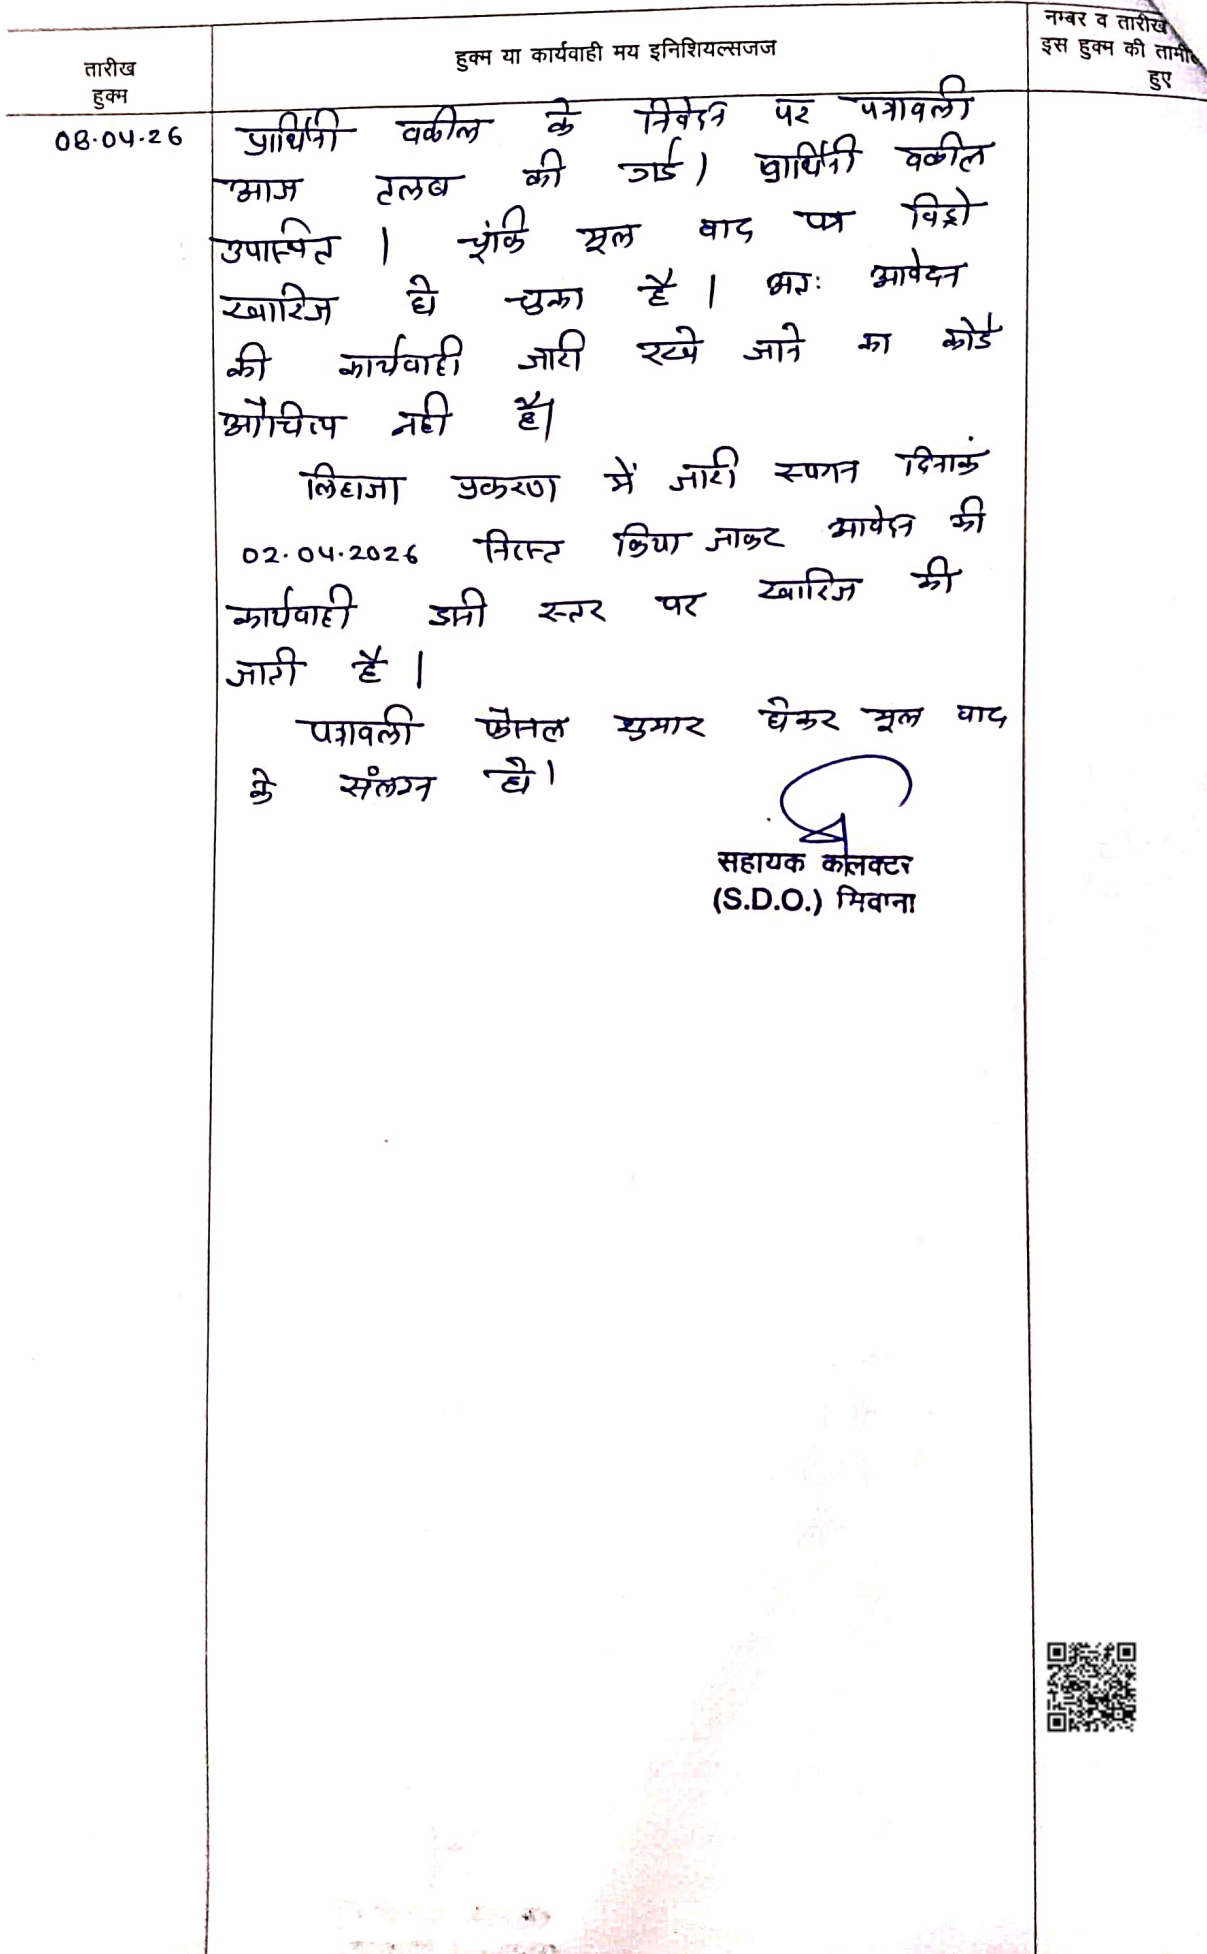 तारीख
हुक्म
हुक्म या कार्यवाही मय इनिशियल्सजज
नम्बर व तारीख
इस हुक्म की तामी
हुए
08.04.26
प्रार्थिनी वकील के निवेदन पर पत्रावली
आज तलब की गई। प्रार्थिनी वकील
उपास्थित । चूंकि मूल वाद पत्र विड्रो
खारिज हो चुका है । अतः आवेदन
की कार्यवाही जारी रखे जाने का कोई
औचित्य नही है।
लिहाजा प्रकरण में जारी स्थगन दिनाकं
02.04.2026 निरस्त किया जाकर आवेदन की
कार्यवाही इसी स्तर पर खारिज की
जाती है ।
पत्रावली फैसल शुमार होकर मूल वाद
के संलग्न हो।
सहायक कलक्टर
(S.D.O.) सिवाना